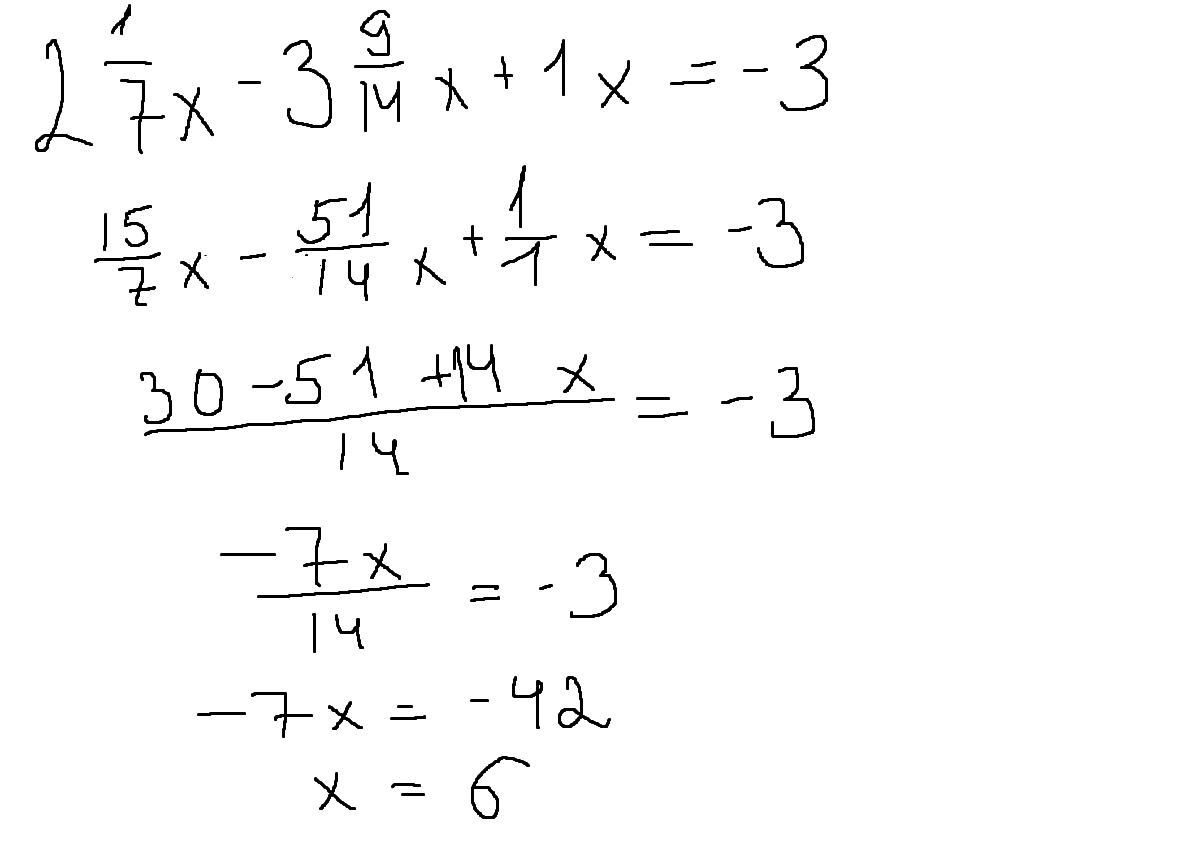 2 1/7 x - 3 9/14 x + 1 x = -3
15/7 x - 51/14 x + 1/1 x = -3
30 - 51 + 14 x / 14 = -3
-7x / 14 = -3
-7x = -42
x = 6